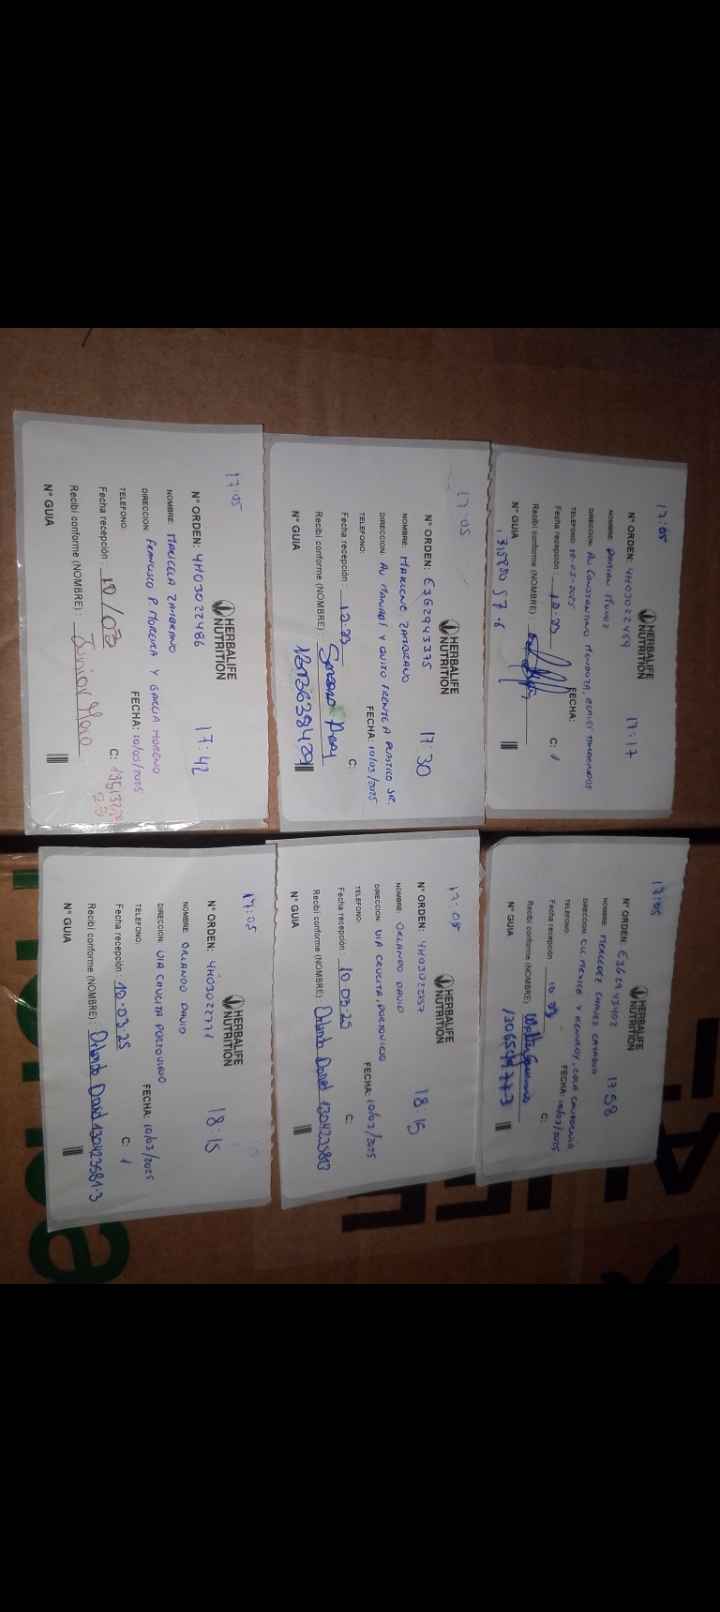 17:05
HERBALIFE
NUTRITION
N° ORDEN: 4H03022459 17:17
NOMBRE: DAMIAN
DIRECCION: AV CONSTANTINO MENDOZA,
TELEFONO: 10-03-2025 FECHA:
Fecha recepción: 10-03 C: 1
Recibi conforme (NOMBRE)
N° GUIA
17:05
HERBALIFE
NUTRITION
N° ORDEN: E362943375 17:30
NOMBRE: MARLENE ZAMBRANO
DIRECCION: AV MANABI Y QUITO FRENTE A PLASTICO JR.
TELEFONO: FECHA: 10/03/2025
Fecha recepción: 10-03 C:
Recibi conforme (NOMBRE)
N° GUIA
17:05
HERBALIFE
NUTRITION
N° ORDEN: 4H03022486 17:42
NOMBRE: MARICELA ZAMBRANO
DIRECCION: FRANCISCO P. MOREIRA Y GARCIA MORENO
TELEFONO: FECHA: 10/03/2025
Fecha recepción: 10/03 C:
Recibi conforme (NOMBRE): Junior
N° GUIA
17:05
HERBALIFE
NUTRITION
N° ORDEN: E362943402 17 58
NOMBRE: MERCEDEZ CHAVEZ
DIRECCION: CLL MEXICO Y KENNEDY, COLA CALIFORNIA
TELEFONO: FECHA: 10/03/2025
Fecha recepción: 10 03 C:
Recibi conforme (NOMBRE) Walter
N° GUIA
17:05
HERBALIFE
NUTRITION
N° ORDEN: 4H03022757 18 15
NOMBRE: ORLANDO DAVID
DIRECCION: VIA CRUCITA, PORTOVIEJO
TELEFONO: FECHA: 10/03/2025
Fecha recepción: 10 03-25 C:
Recibi conforme (NOMBRE): Orlando David 1304235813
N° GUIA
17:05
HERBALIFE
NUTRITION
N° ORDEN: 4H03022771 18:15
NOMBRE: ORLANDO DAVID
DIRECCION: VIA CRUCITA PORTOVIEJO
TELEFONO: FECHA: 10/03/2025
Fecha recepción: 10-03.25 C: 1
Recibi conforme (NOMBRE) Orlando David 1304235813
N° GUIA